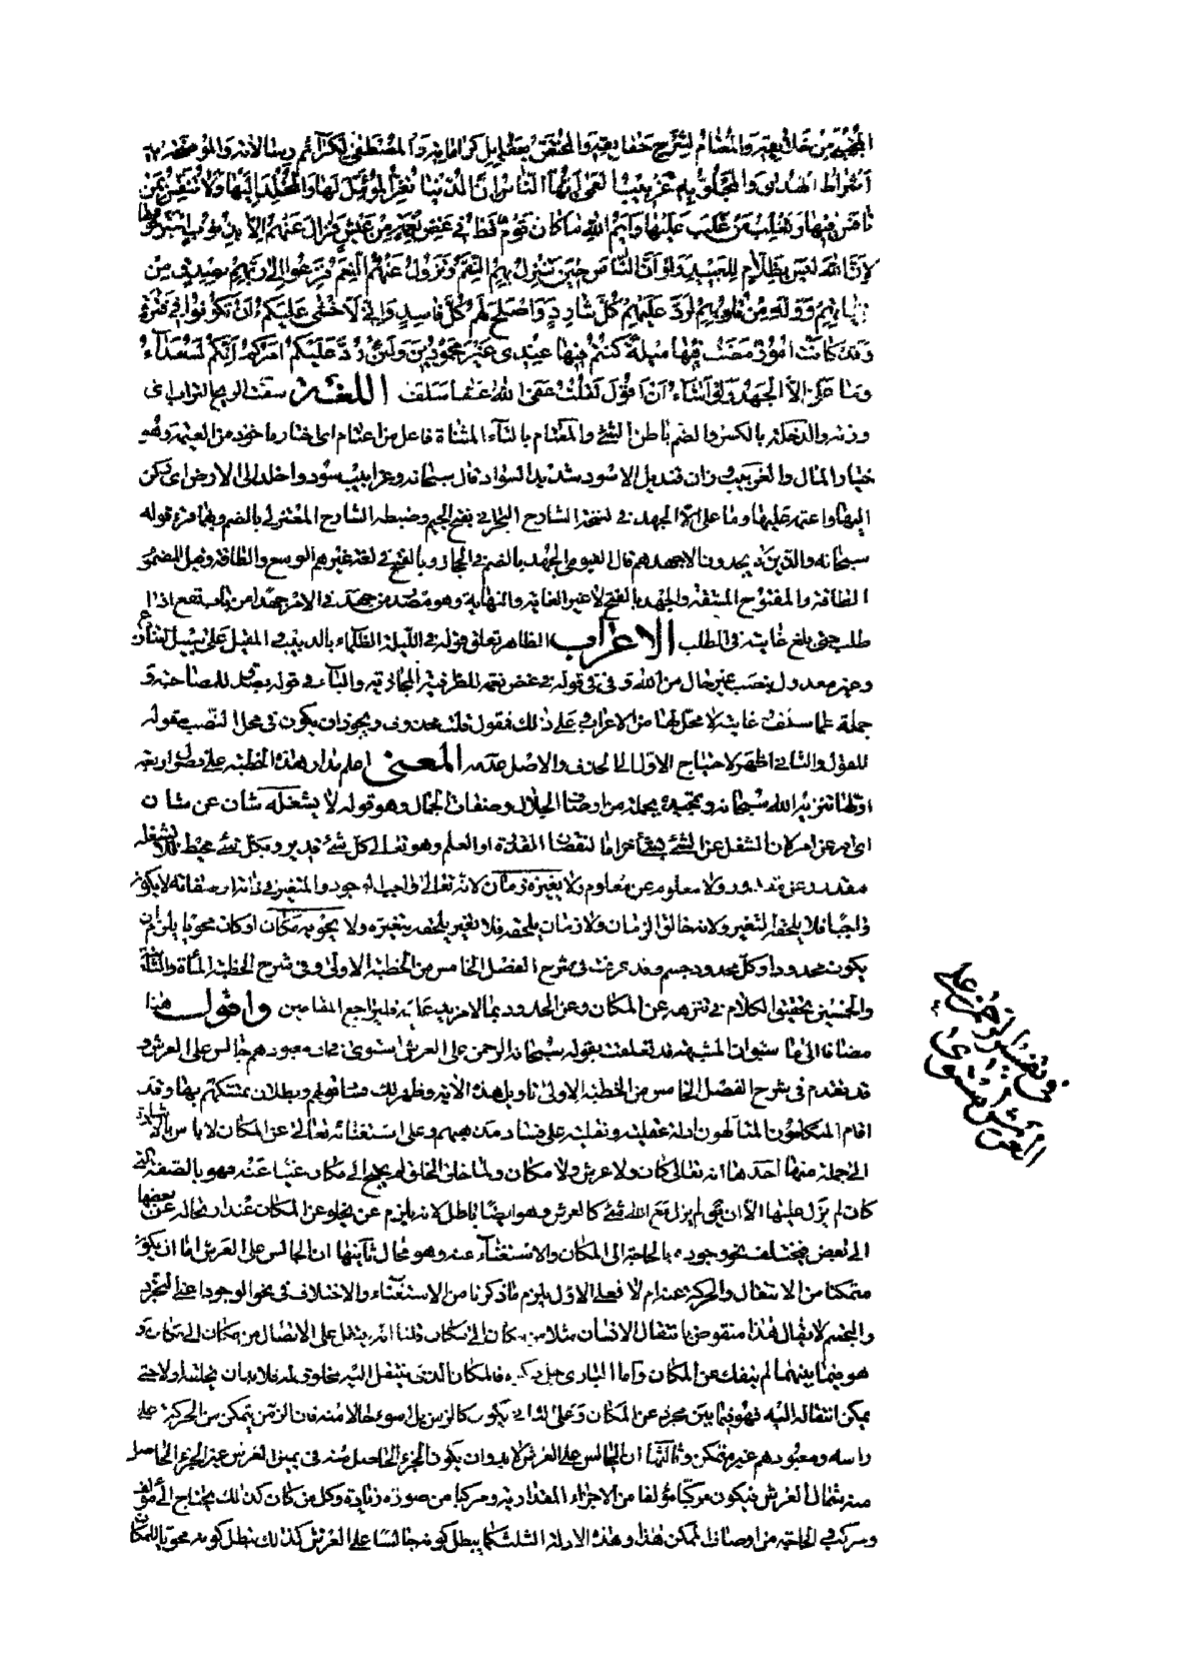 المجتبى من خلائقه والمعتام لشرح حقايقه والمختص بعقايل كراماته والمصطفى لكرائم رسالاته والموضحة به
أشراط الهدى والمجلوّ به غربيب العمى أيها الناس إن الدنيا تغر المؤمل لها والمخلد إليها ولا تنفس بمن
نافس فيها وتغلب من غلب عليها وأيم الله ما كان قوم قط في غض نعمة من عيش فزال عنهم إلا بذنوب اجترحوها
لأن الله ليس بظلام للعبيد ولو أن الناس حين تنزل بهم النقم وتزول عنهم النعم فزعوا إلى ربهم بصدق من
نياتهم ووله من قلوبهم لرد عليهم كل شارد وأصلح لهم كل فاسد وإني لأخشى عليكم أن تكونوا في فترة
وقد كانت أمور مضت فيها ميلة كنتم فيها عندي غير محمودين ولئن رد عليكم أمركم إنكم لسعداء
وما علي إلا الجهد ولو أشاء أن أقول لقلت عفى الله عما سلف اللغة سفت الريح التراب اى
ذرته والدخلة بالكسر والضم باطن الشئ والمعتام بالتاء المثناة فاعل من اعتام اى اختار ماخوذ من العيمة وهو
خيار المال والغربيب وزان قنديل الاسود شديد السواد قال سبحانه وغرابيب سود واخلد الى الارض اى ركن
اليها واعتمد عليها وما على الا الجهد في نسخة الشارح البحراني بفتح الجيم وضبطه الشارح المعتزلي بالضم وبهما قرء قوله
سبحانه والذين لا يجدون الا جهدهم قال الفيومي الجهد بالضم في الحجاز وبالفتح في لغة غيرهم الوسع والطاقة وقيل المضموم
الطاقة والمفتوح المشقة والجهد بالفتح لا غير الغاية والنهاية وهو مصدر من جهد في الامر جهدا من باب نفع اذا
طلب حتى بلغ غايته في الطلب الاعراب الظاهر تعلق قوله في الليلة الظلماء بالدبيب المقيل على سبيل التنازع
وغير معدول بنصب غير حال من الله وفى في قوله في غض نعمة للظرفية المجازية والباء في قوله بصدق للمصاحبة و
جملة عما سلف غاية لا محل لها من الاعراب على ذلك فقول قلت محذوف ويجوز ان يكون في محل النصب مقوله
للقول والثاني اظهر لاحتياج الاول الى الحذف والاصل عدمه المعنى اعلم مدار هذه الخطبة على فصول اربعة
اولها تنزيه الله سبحانه وتمجيده بجملة من اوصاف الجلال وصفات الجمال وهو قوله لا يشغله شان عن شان
اى امر عن امر لان الشغل عن الشئ بشئ آخر اما لنقص القدرة او العلم وهو تعالى على كل شئ قدير وبكل شئ محيط فلا يشغله
مقدور عن مقدور ولا معلوم عن معلوم ولا يغيره زمان لانه تعالى واجب الوجود والمتغير في ذاته او صفاته لا يكون
واجبا فلا يلحقه التغير ولانه خالق الزمان ولا زمان يلحقه فلا تغير يلحقه بتغيره ولا يحويه مكان اذ كان محويا يلزم ان
يكون محدودا وكل محدود جسم وقد عرفت في شرح الفصل الخامس من الخطبة الاولى وفى شرح الخطبة المأة والثانية
والخمسين تحقيق الكلام في تنزهه عن المكان وعن الحدود بما لا مزيد عليه فليراجع المقامين واقول هذا
مضافا الى ما سنبين ان المشبهة قد تعلقت بقوله سبحانه الرحمن على العرش استوى في ان معبودهم جالس على العرش و
قد تقدم في شرح الفصل الخامس من الخطبة الاولى تاويل هذه الاية وظهر لك فساد قولهم وبطلان تمسكهم بها وقد
اقام المتكلمون المتألهون ادلة عقلية ونقلية على فساد مذهبهم وعلى استغنائه تعالى عن المكان لا باس بالاشارة
الى جملة منها احدها انه تعالى كان ولا عرش ولا مكان ولما خلق الخلق لم يحتج الى مكان غنيا عنه فهو بالصفة التي
كان لم يزل عليها الا ان يقى لم يزل مع الله شئ كالعرش وهو ايضا باطل لانه يلزم عن يخلو عن المكان عند ارتحاله عن بعضها
الى بعض فيختلف نحو وجوده بالحاجة الى المكان والاستغناء عنه وهو محال ثانيها ان الجالس على العرش اما ان يكون
متمكنا من الانتقال والحركة عنه ام لا فعلى الاول يلزم ما ذكرنا من الاستغناء والاختلاف في نحو الوجود اعنى التجرد
والتجسم لا يقال هذا منقوض بانتقال الانسان مثلا من مكان الى مكان قلنا انه ينتقل على الاتصال من مكان الى مكان و
هو فيما بينهما لم ينفك عن المكان واما البارى جل ذكره فالمكان الذى ينتقل اليه مخلوق له فلابد ان يخلقه اولا حتى
يمكن انتقاله اليه فهو فيما بين مجرد عن المكان وعلى الثاني يكون كالزمن بل اسوء حالا منه فان الزمن يتمكن من الحركة على
راسه ومعبودهم غير متمكن وثالثها ان الجالس على العرش لابد وان يكون الجزء الحاصل منه في يمين العرش غير الجزء الحاصل
منه شمال العرش فيكون مركبا مؤلفا من الاجزاء المقدارية ومركبا من صورة وزيادة وكل من كان كذلك يحتاج الى مؤلف
ومركب والحاجة من اوصاف الممكن هذا وهذه الادلة الثلث كما يبطل كونه جالسا على العرش كذلك يبطل كونه محويا للمكان
في تفسير الرحمن على
العرش استوى